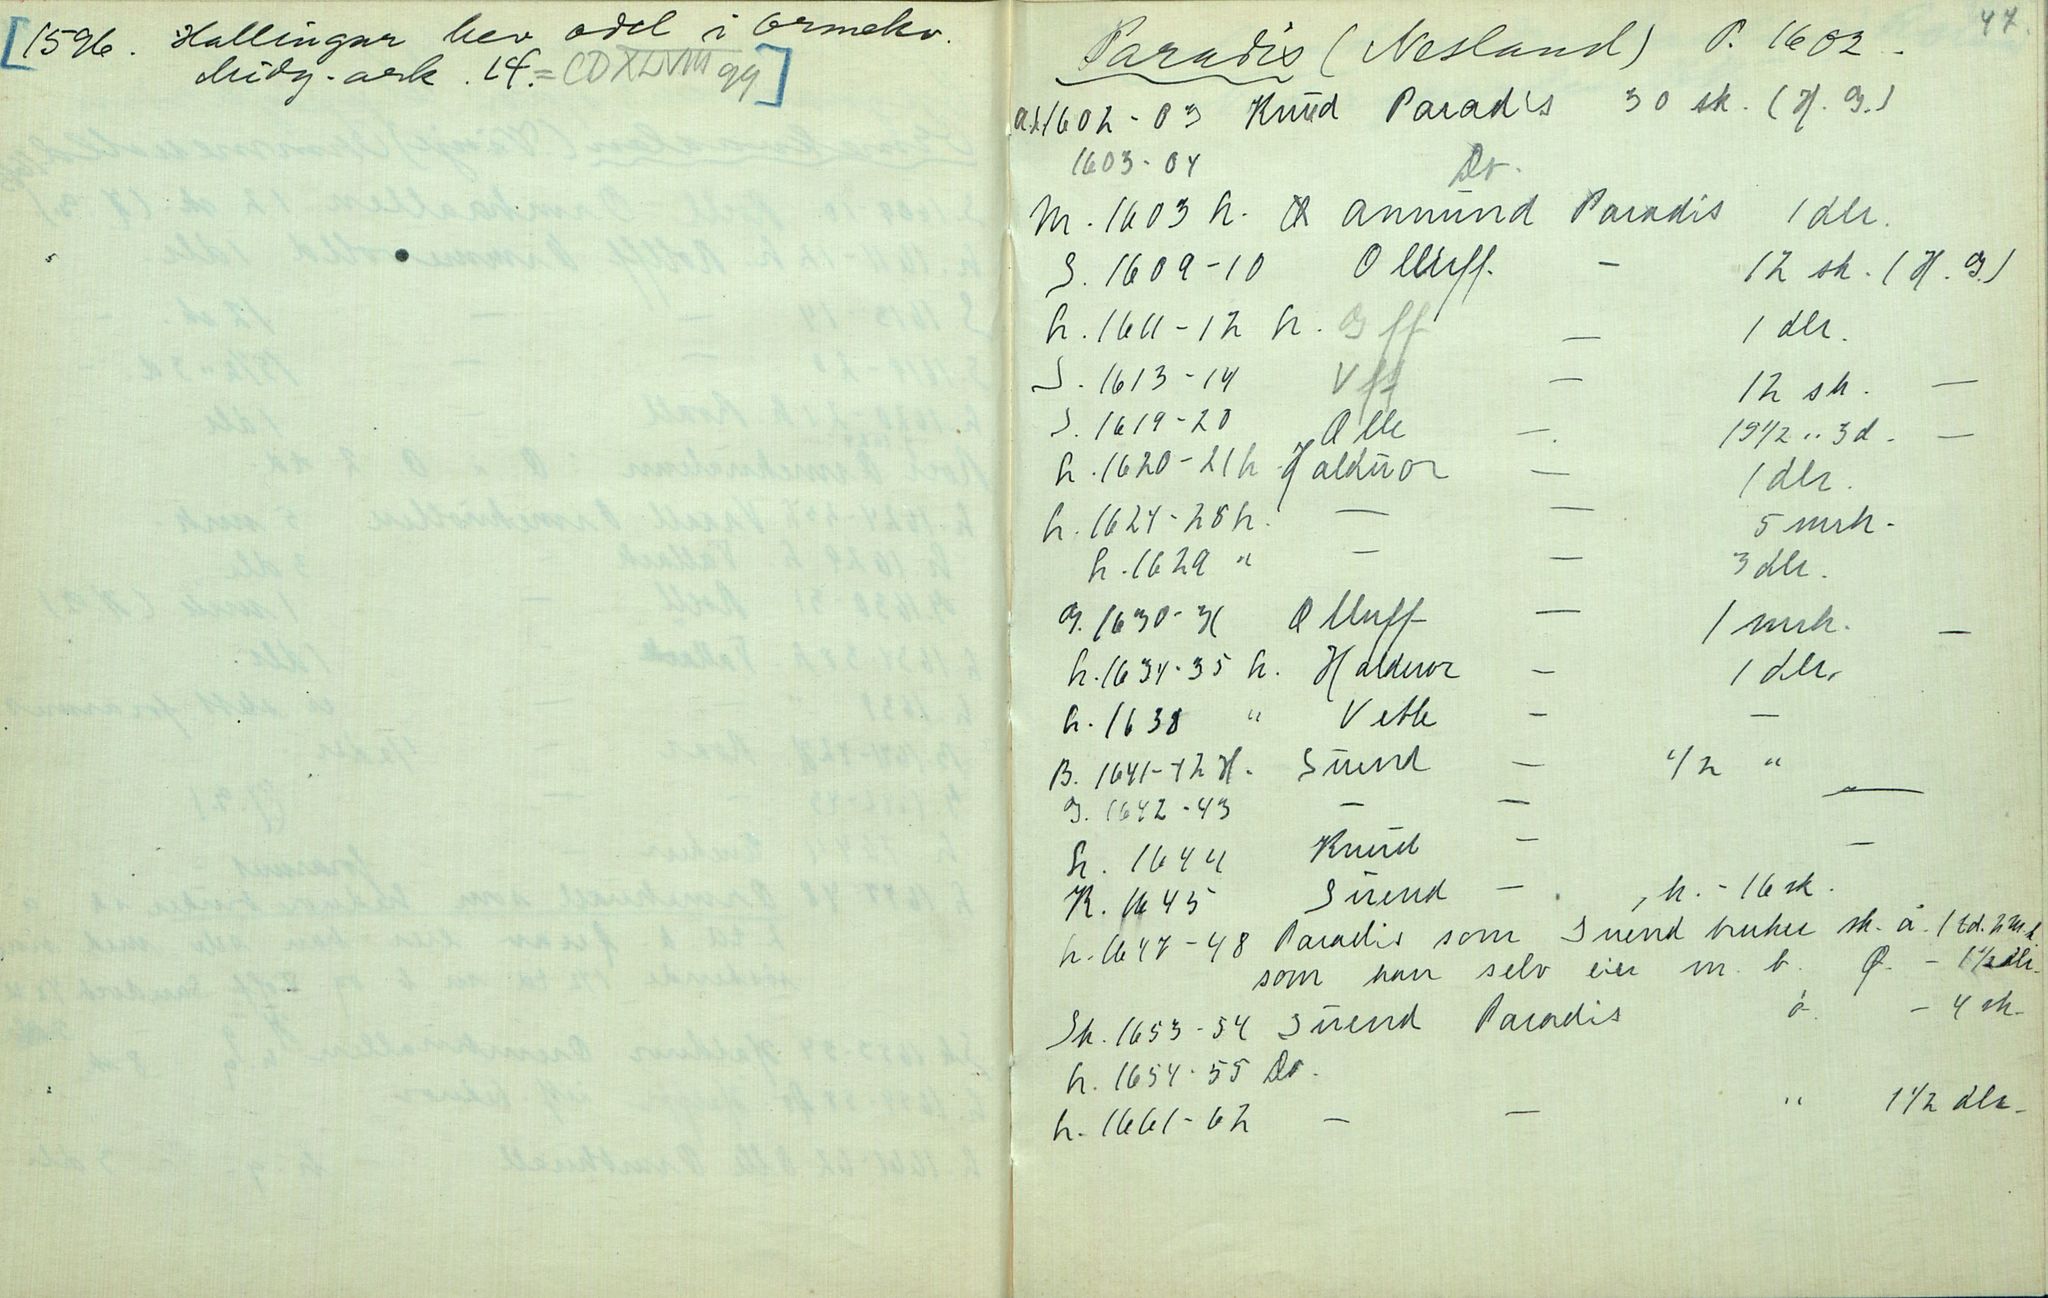 [1596. Hallingar hev odel i Ormekv.
Midg-ark. 14.=CDXLVIII 99]
47.
Paradis (Nesland) P. 1602
1602-03 Knüd Paradis 30 sk. (H. G.)
1603-04 Do.
M. 1603 h. Anmünd Paradis 1 dlr.
S. 1609-10 Olluff. — 12 sk. (H. G.)
h. 1611-12 h. Gff — 1 dlr.
S. 1613-14 Vff — 12 sk. —
S. 1619-20 Olle — 19 1/2 " 3 d. —
h. 1620-21 h. Haldüor — 1 dlr.
h. 1624-25 h. — — 5 mrk.
h. 1629 " — — 3 dlr.
G. 1630-31 Olluff — 1 mrk. —
h. 1634-35 h. Halduor — 1 dlr.
h. 1638 " Vetle — —
B. 1641-42 H. Süend — 1/2 " —
G. 1642-43 — —
h. 1644 Knüd — —
K. 1645 Süend — h. - 16 sk.
h. 1647-48 Paradis som Suend bruker sk. å. 1 td. h
som han selv eier m. b. Ø. - 1 1/2 dlr.
Sk. 1653-54 Süend Paradis å. - 4 sk.
h. 1654-55 Do.
h. 1661-62 — — " 1 1/2 dlr.